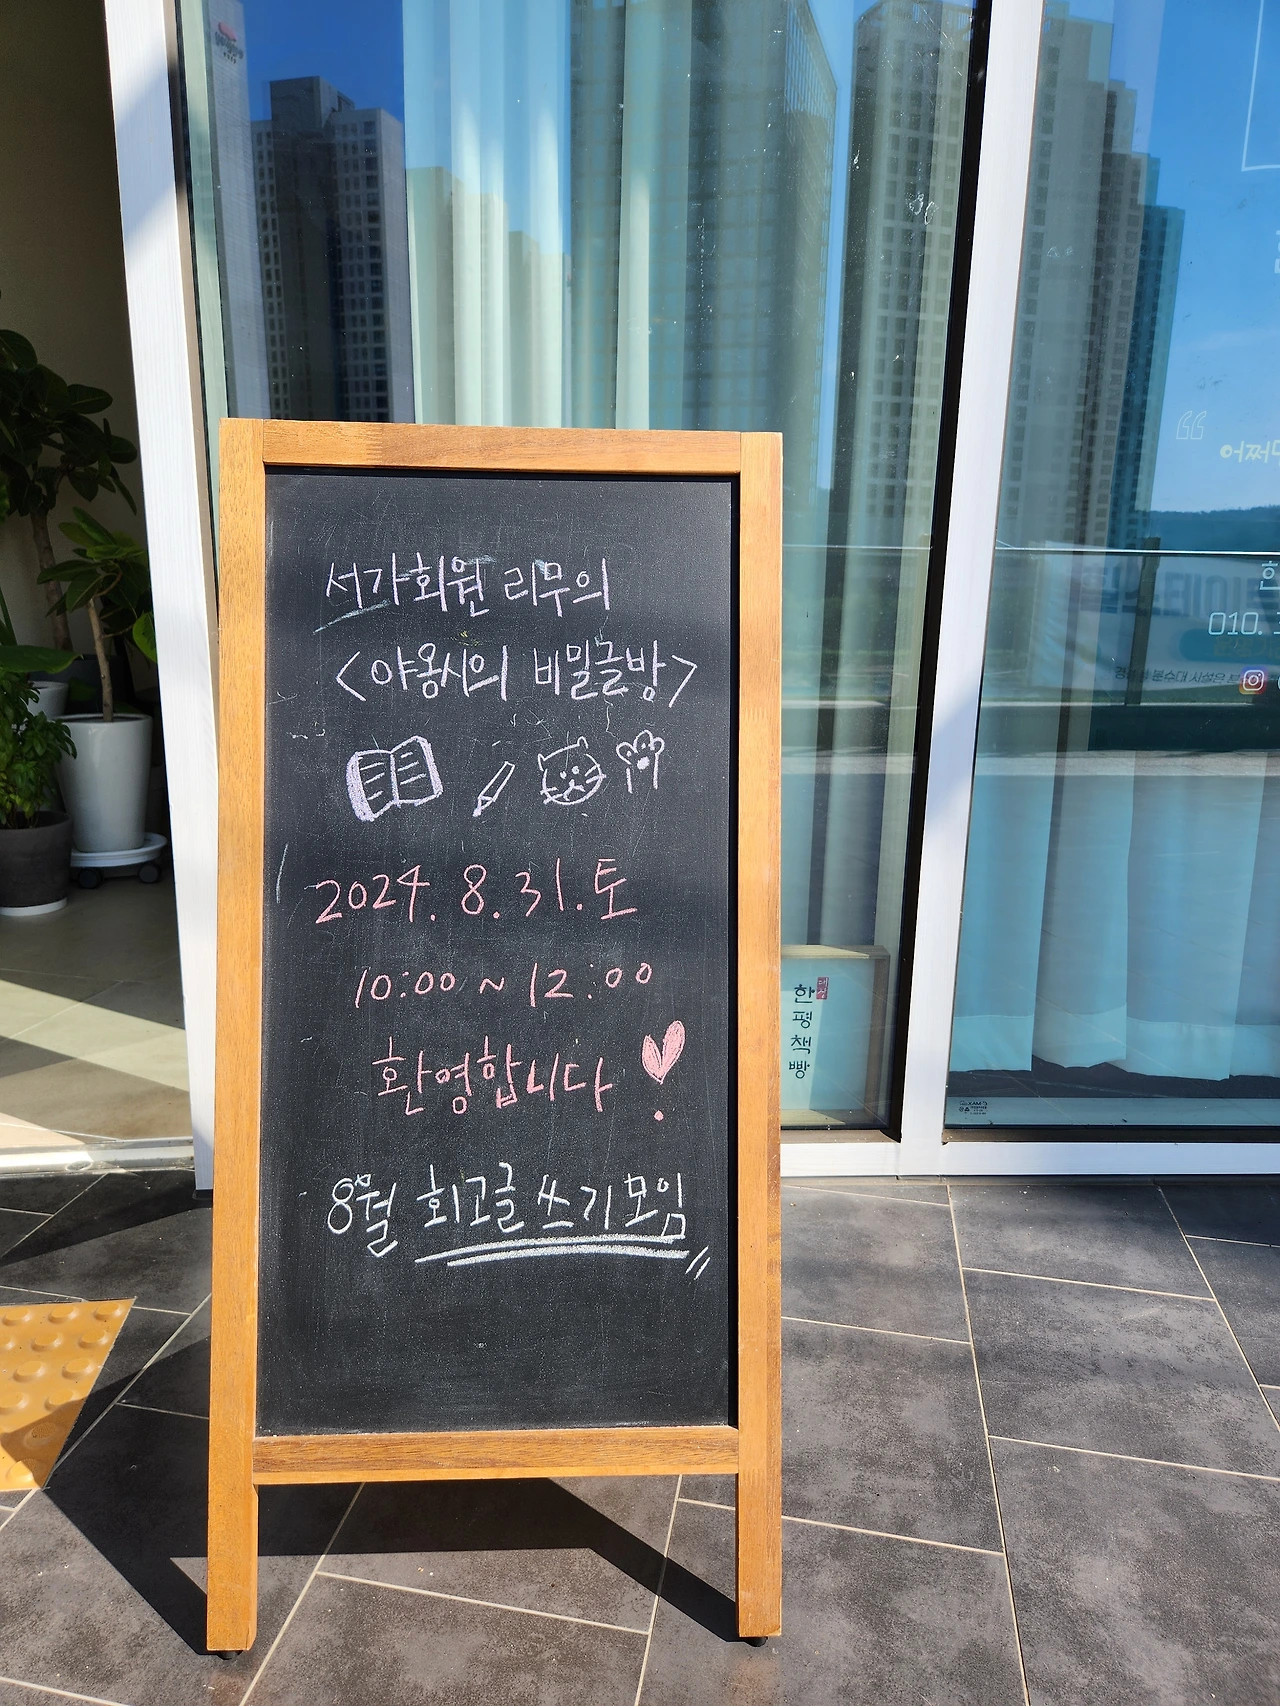 서가회원 리무의
<야옹시의 비밀글방>
2024. 8. 31. 토
10:00 ~ 12:00
환영합니다
8월 회고글쓰기모임
한평책빵
010.